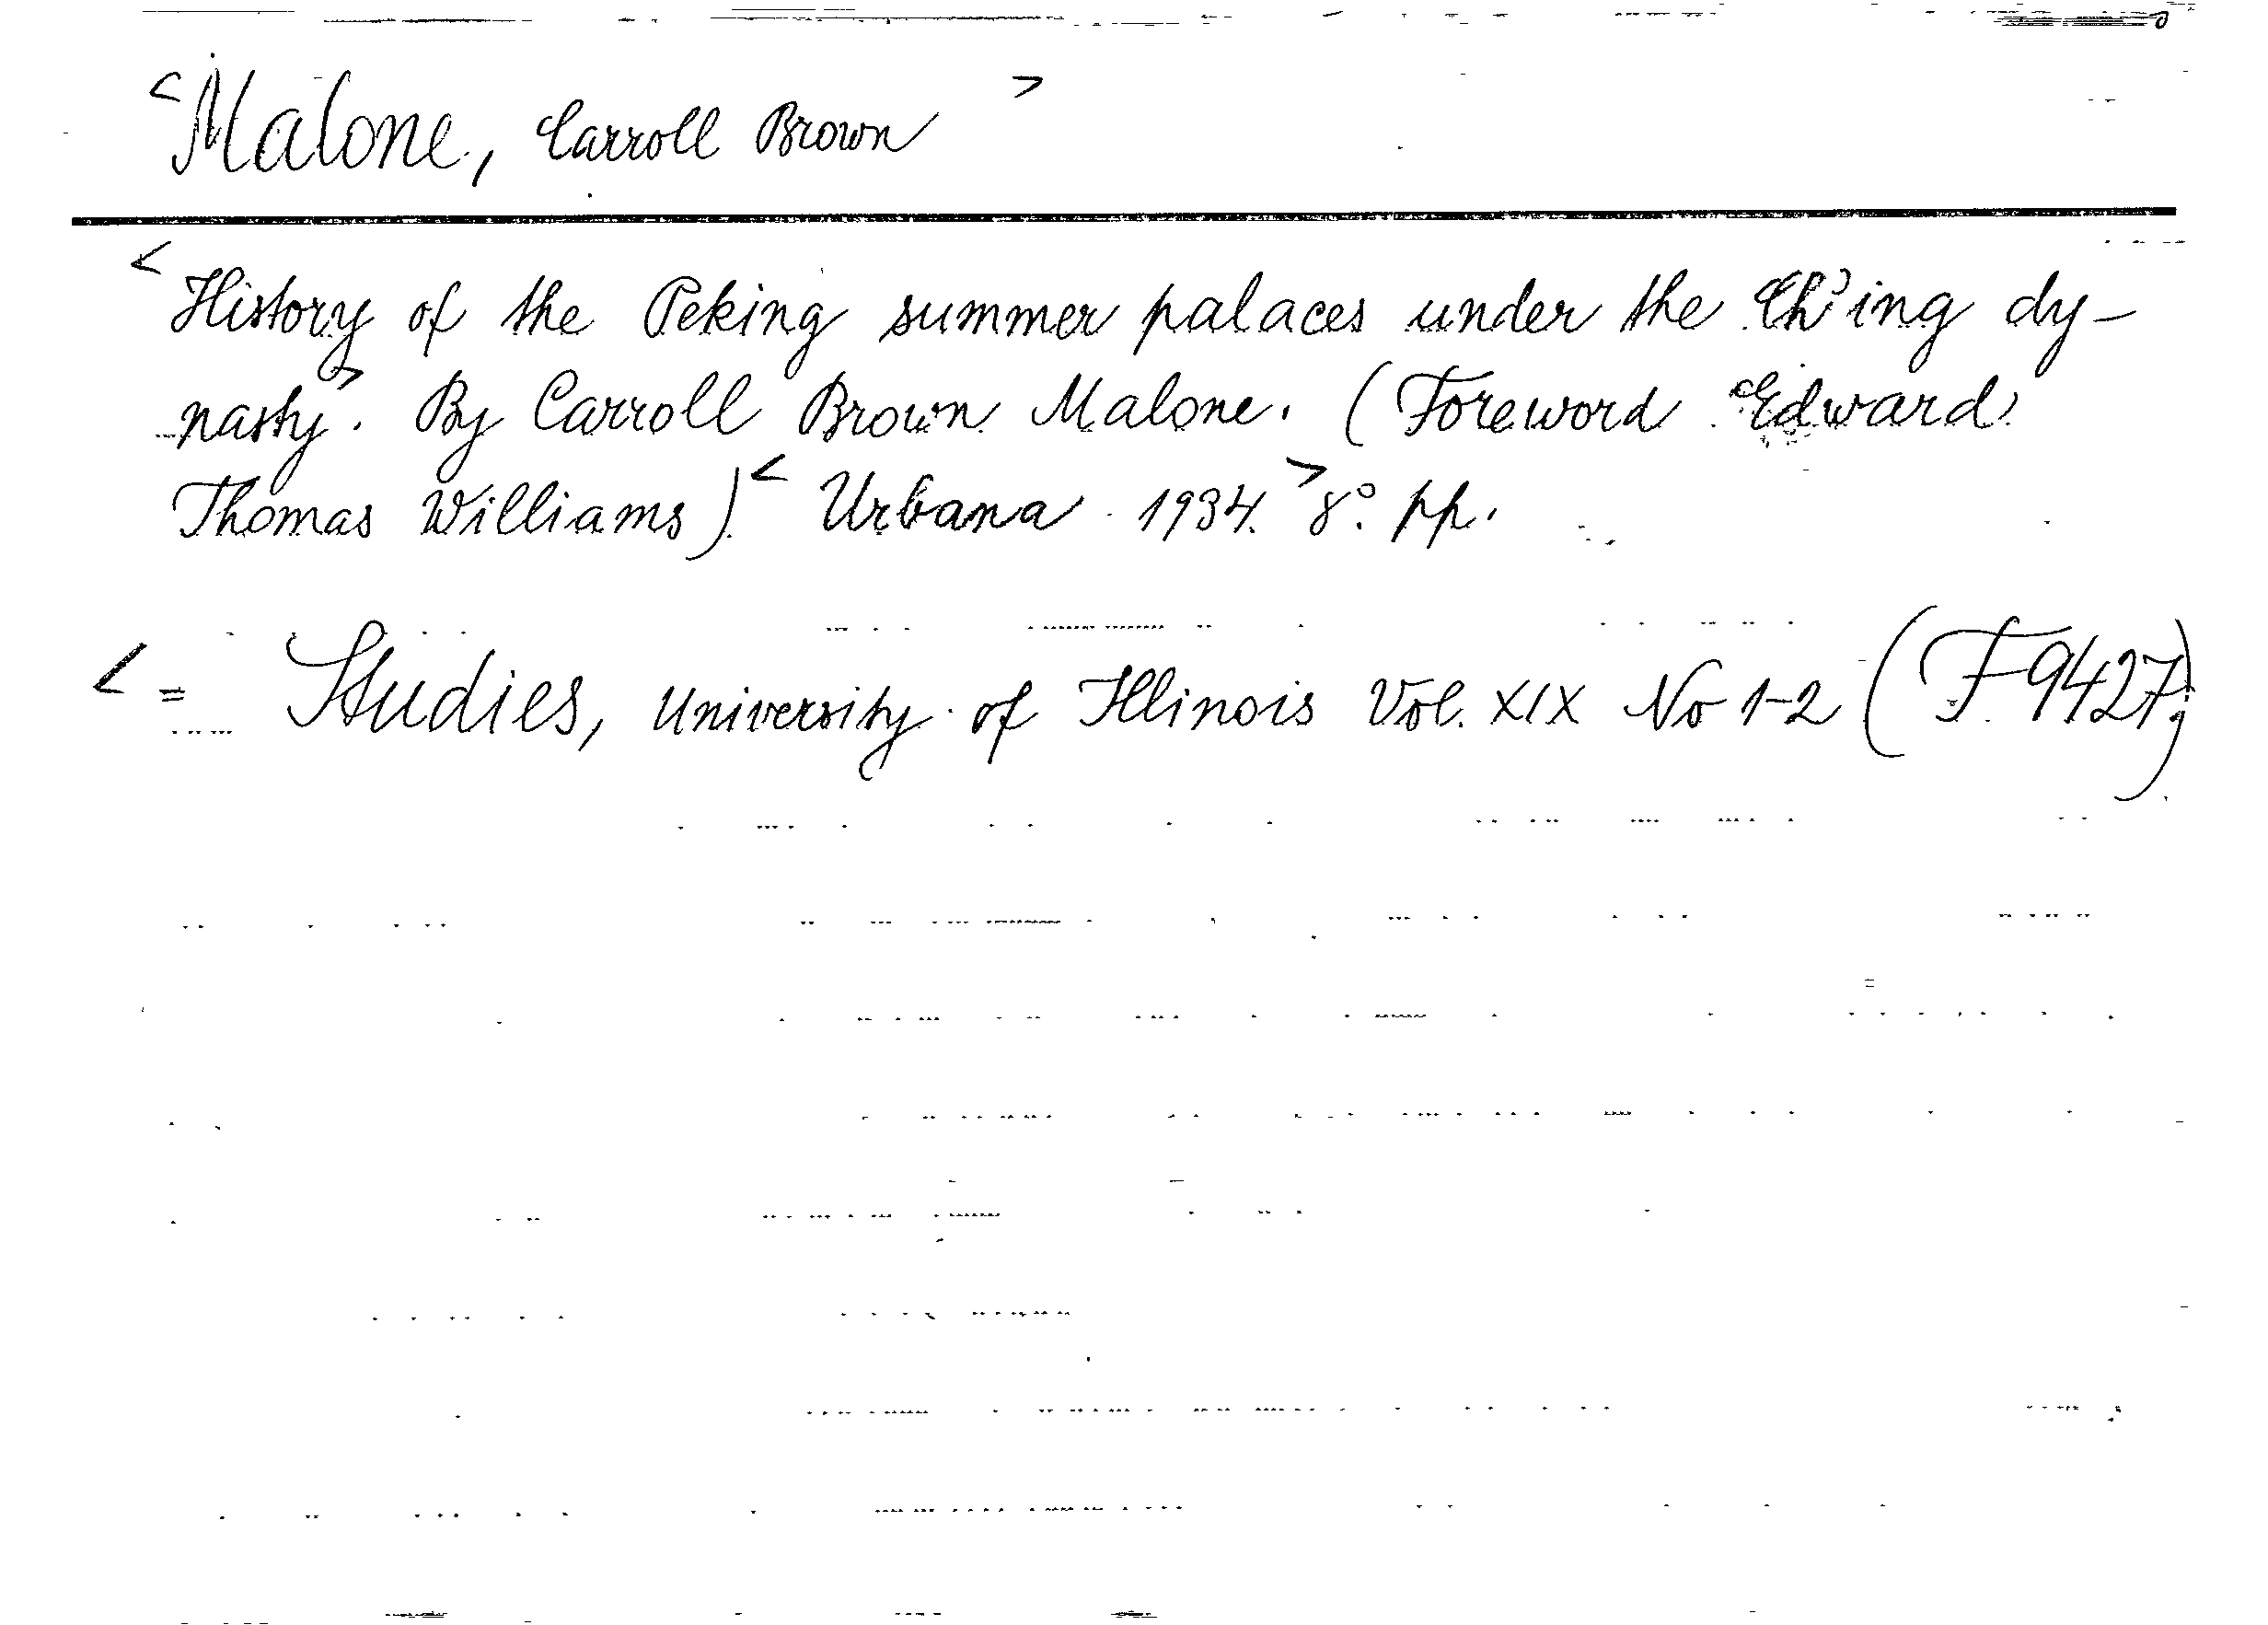 <Malone, Carroll Brown>
<History of the Peking summer palaces under the Ch'ing dy-
nasty>. By Carroll Brown Malone. (Foreword Edward
Thomas Williams).< Urbana 1934.> 8°. pp.
<= Studies, University of Illinois Vol. XIX No 1-2 (F 9427;)